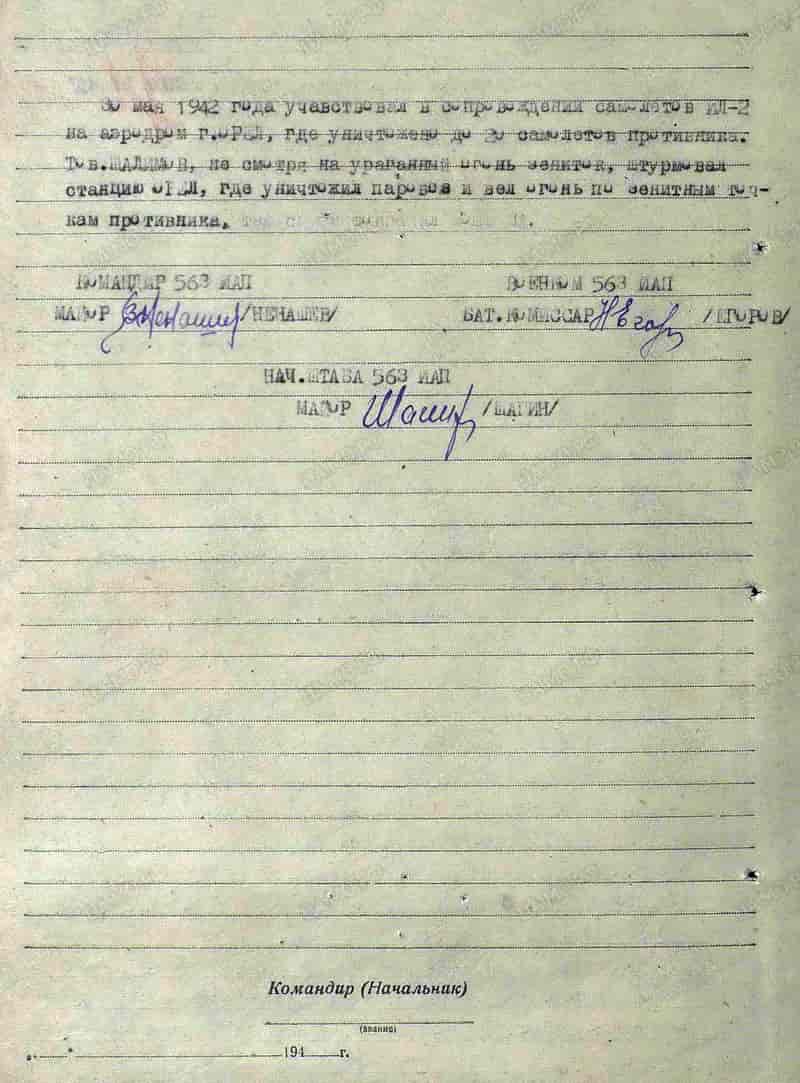 30 мая 1942 года учавствовал в сопровождении самолетов ИЛ-2
на аэродром г.ОРЕЛ, где уничтожено до 20 самолетов противника.
Тов.ШАЛИМОВ, не смотря на ураганный огонь зениток, штурмовал
станцию ОРЕЛ, где уничтожил паровоз и вел огонь по зенитным точ-
кам противника.
КОМАНДИР 563 ИАП ВОЕНКОМ 563 ИАП
МАЙОР Ненашев /НЕНАШЕВ/ БАТ.КОМИССАР НЕгор /ЕГОРОВ/
НАЧ.ШТАБА 563 ИАП
МАЙОР Шагин /ШАГИН/
Командир (Начальник)
(звание)
„ " 194 г.